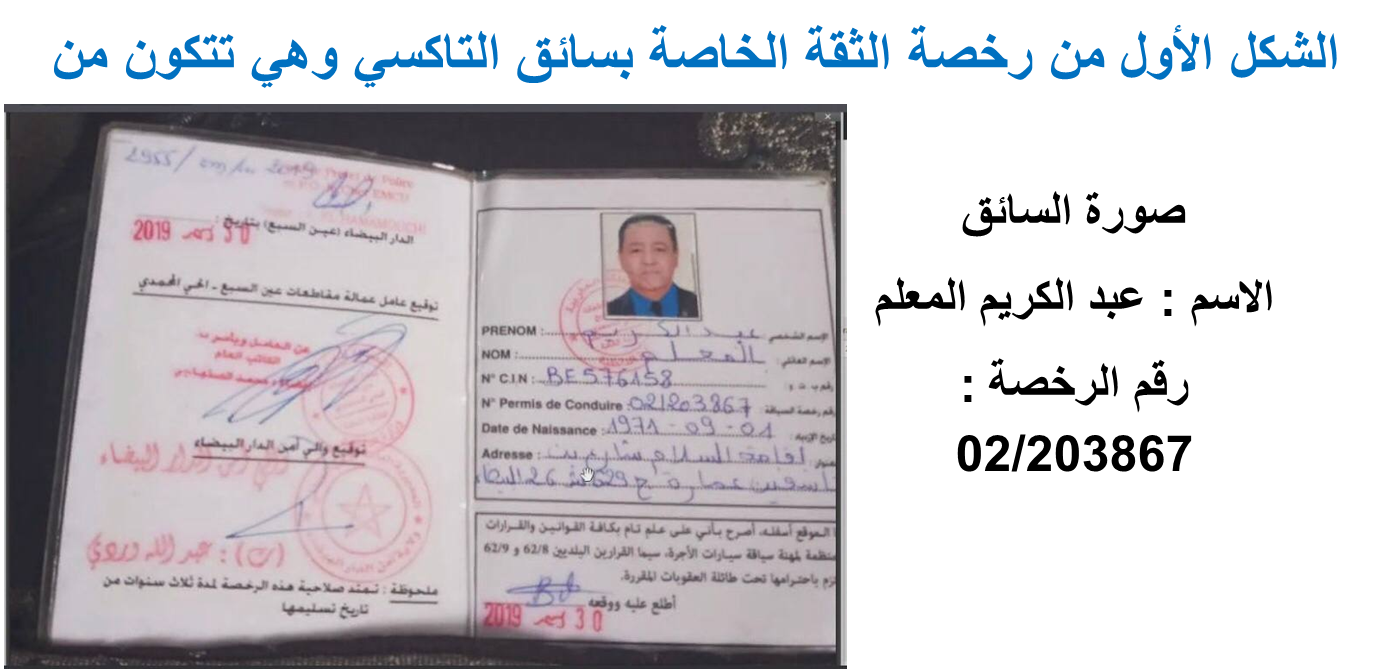 الشكل الأول من رخصة الثقة الخاصة بسائق التاكسي وهي تتكون من
صورة السائق
الاسم : عبد الكريم المعلم
رقم الرخصة :
02/203867
2955/
الدار البيضاء (عين السبع) بتاريخ :
30 دجنبر 2019
توقيع عامل عمالة مقاطعات عين السبع - الحي المحمدي
عن العامل وبأمر منه
الكاتب العام
توقيع والي أمن الدار البيضاء
والي أمن الدار البيضاء
عبد الله وردي
ملحوظة : تمتد صلاحية هذه الرخصة لمدة ثلاث سنوات من
تاريخ تسليمها
PRENOM : عبد الكريم الإسم الشخصي
NOM : المعلم الإسم العائلي
N° C.I.N : BE576158 رقم ب. ت. و :
N° Permis de Conduire 02/203867 رقم رخصة السياقة :
Date de Naissance : 1971-09-01 تاريخ الازدياد :
Adresse : إقامة السلام
عمارة ج 629 26 البيضاء
الموقع أسفله، أصرح بأني على علم تام بكافة القوانين والقرارات
المنظمة لمهنة سياقة سيارات الأجرة، سيما القرارين البلديين 62/8 و 62/9
باحترامها تحت طائلة العقوبات المقررة.
أطلع عليه ووقعه
30 دجنبر 2019